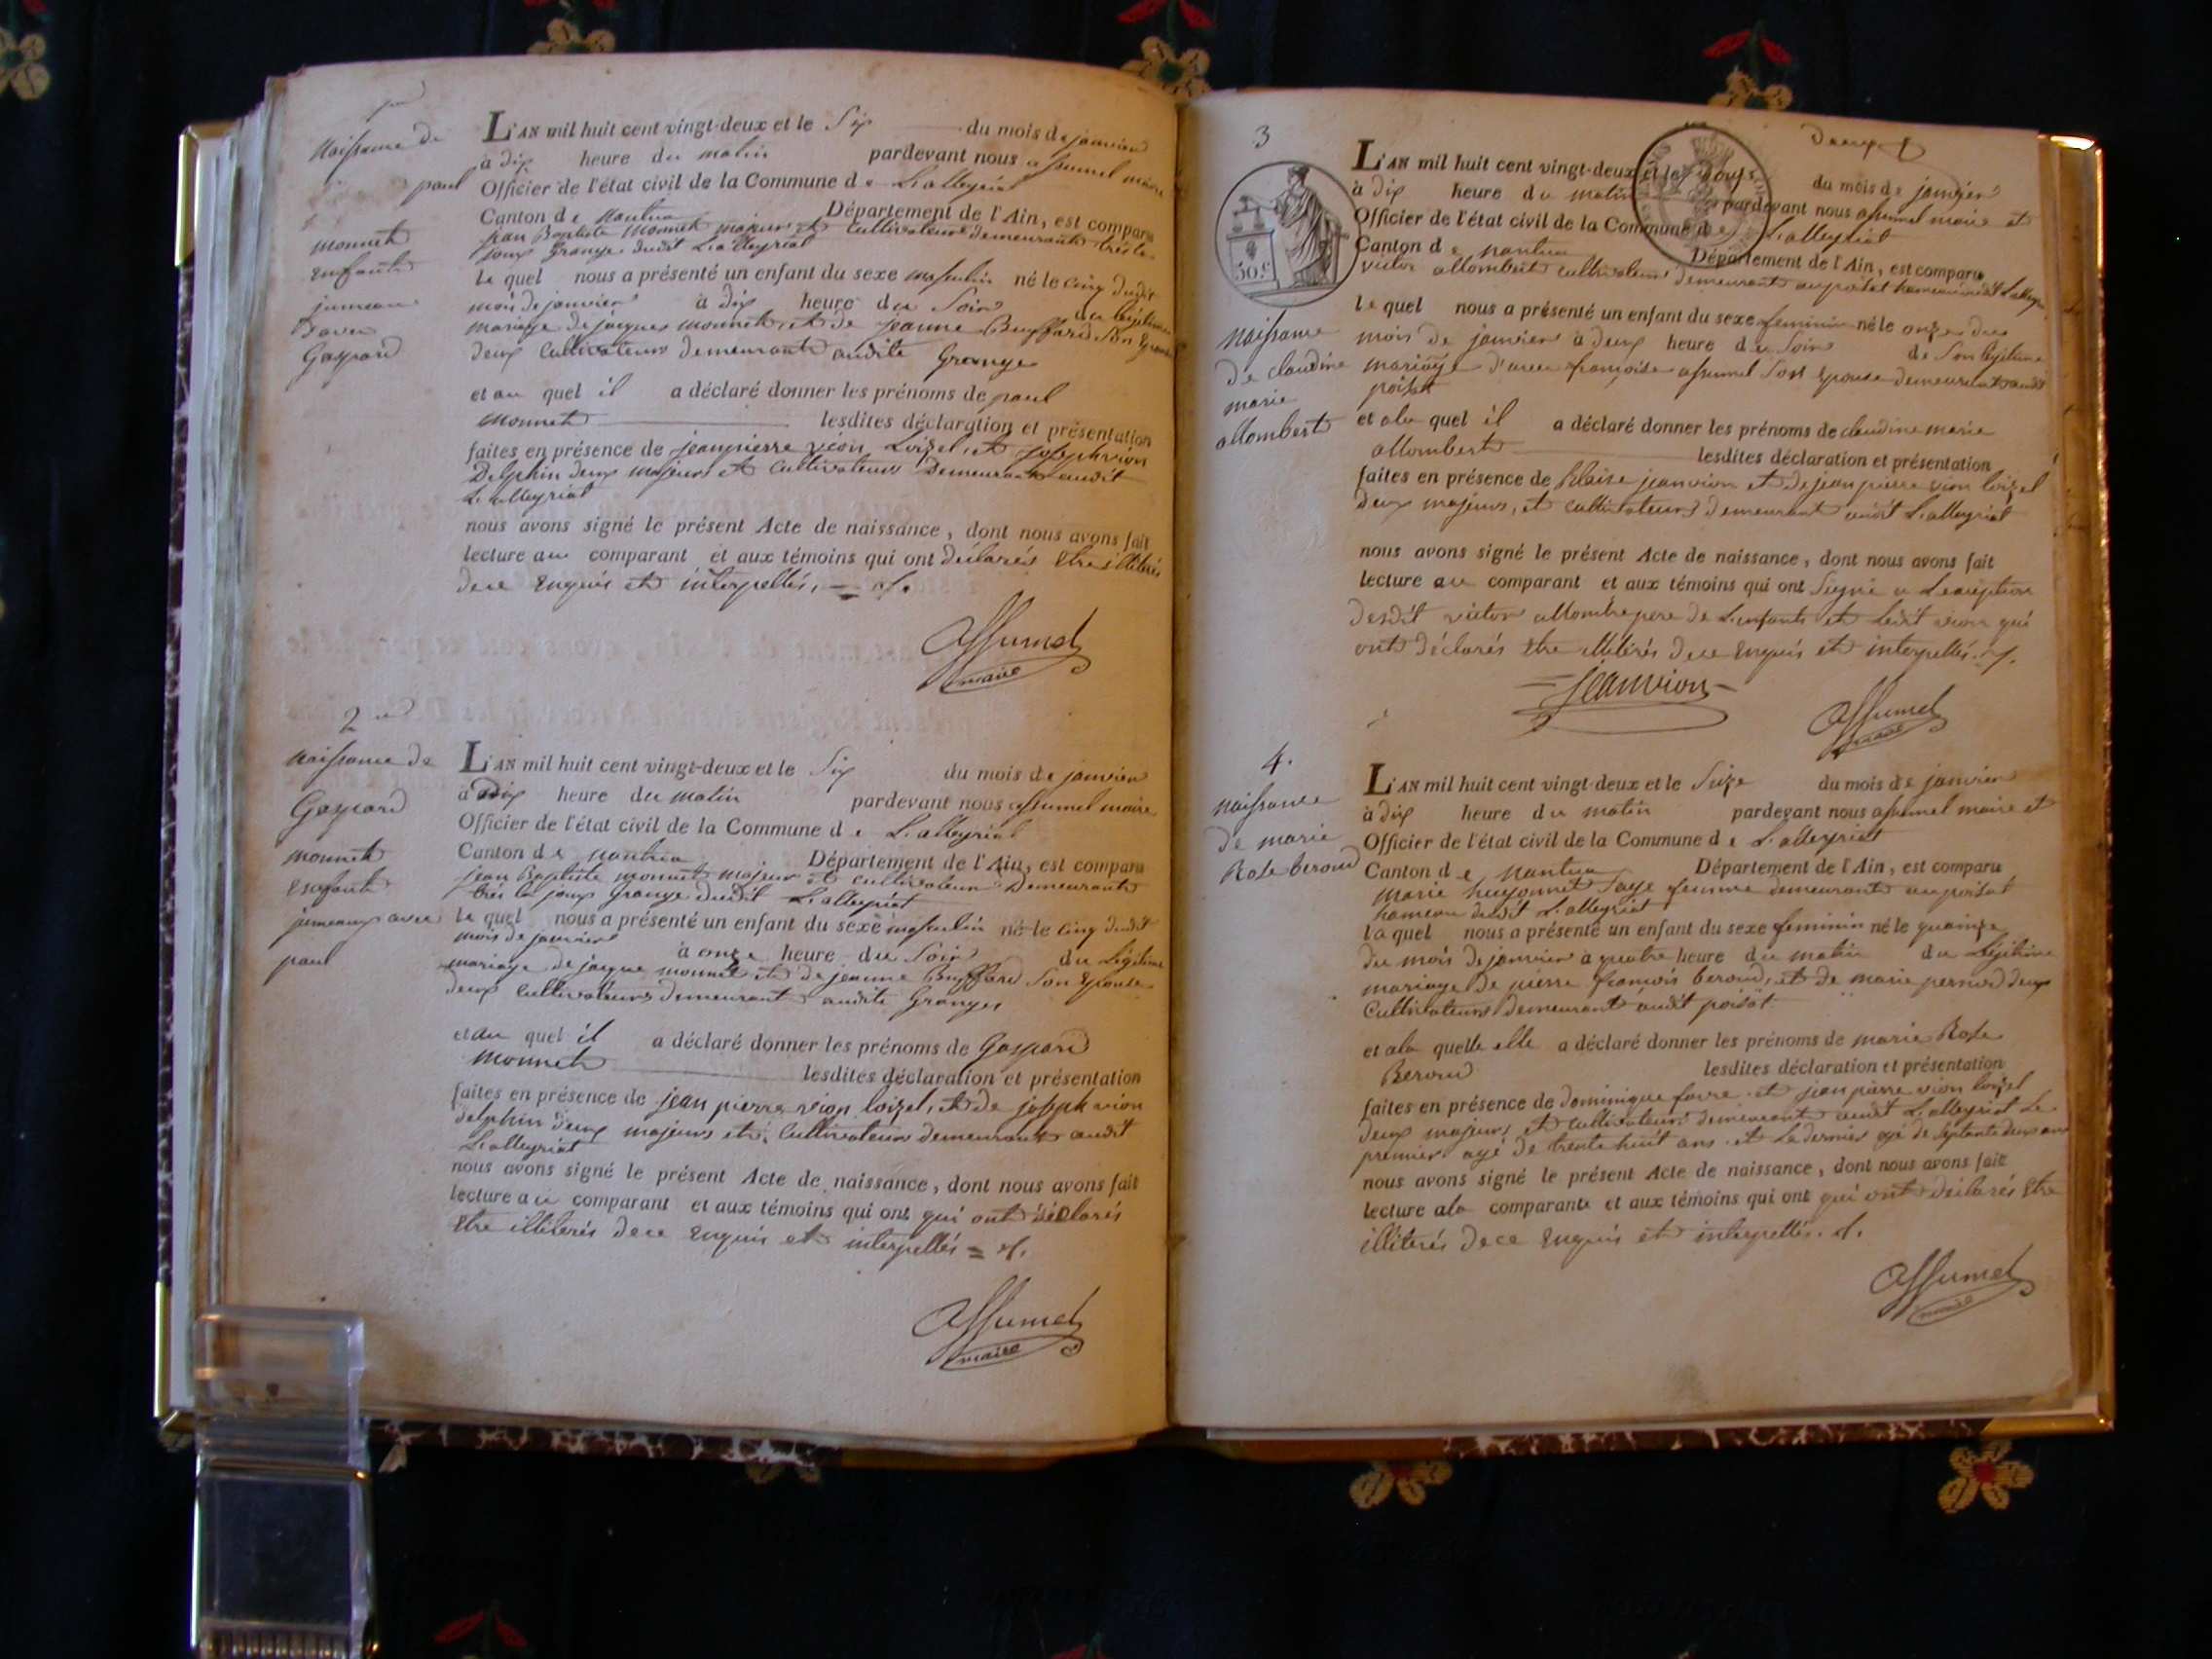 naissance de
paul
monnet
enfant
jumeau
Gaspard
L'AN mil huit cent vingt-deux et le Six du mois de janvier
à dix heure du matin pardevant nous assumel maire
Officier de l'état civil de la Commune de L'alleyriat
Canton de nantua Département de l'Ain, est comparu
jean Baptiste monnet majeur et Cultivateur demeurant très la
joux Grange dudit L'alleyriat
le quel nous a présenté un enfant du sexe masculin né le cinq dudit
mois de janvier à dix heure du Soir du légitime
mariage de jacques monnet et de jeanne Buffard Son Epouse
deux Cultivateurs demeurant audite Grange
et au quel il a déclaré donner les prénoms de paul
monnet lesdites déclaration et présentation
faites en présence de jeanpierre vion Loizel, et joseph vion
Delphin deux majeurs et Cultivateurs Demeurant audit
L'alleyriat
nous avons signé le présent Acte de naissance, dont nous avons fait
lecture au comparant et aux témoins qui ont déclarés Etre illiterés
dece Enquis et interpellés.
assumel
maire
2
naissance de
Gaspard
monnet
Enfant
jumeaux avec
paul
L'AN mil huit cent vingt-deux et le Six du mois de janvier
à dix heure du matin pardevant nous assumel maire
Officier de l'état civil de la Commune de L'alleyriat
Canton de nantua Département de l'Ain, est comparu
jean Baptiste monnet majeur et cultivateur Demeurant
très la joux Grange dudit L'alleyriat
le quel nous a présenté un enfant du sexe masculin né le cinq dudit
mois de janvier à onze heure du Soir du Légitime
mariage de jacque monnet et de jeanne Buffard Son Epouse
deux Cultivateurs demeurant audite Granges
et au quel il a déclaré donner les prénoms de Gaspard
monnet lesdites déclaration et présentation
faites en présence de jean pierre vion loizel, et de joseph vion
delphin deux majeurs et Cultivateurs demeurant audit
L'alleyriat
nous avons signé le présent Acte de naissance, dont nous avons fait
lecture au comparant et aux témoins qui ont qui ont déclarés
Etre illiterés dece Enquis et interpellés
assumel
maire
deux
3
50 c
naissance
de claudine
marie
allombert
L'AN mil huit cent vingt-deux et le douze du mois de janvier
à dix heure du matin pardevant nous assumel maire et
Officier de l'état civil de la Commune de L'alleyriat
Canton de nantua Département de l'Ain, est comparu
victor allombert cultivateur demeurant au poisat hameau dudit L'alleyriat
le quel nous a présenté un enfant du sexe feminin né le onze du
mois de janvier à deux heure du Soir de Son légitime
mariage d'avec françoise assumel Son Epouse demeurant audit
poisat
et ala quel il a déclaré donner les prénoms de claudine marie
allombert lesdites déclaration et présentation
faites en présence de Blaise jeanvion et de jean pierre vion loizel
deux majeurs, et cultivateurs demeurant audit L'alleyriat
nous avons signé le présent Acte de naissance, dont nous avons fait
lecture au comparant et aux témoins qui ont Signé a Lexception
dudit victor allombert pere de L'enfant et ledit vion qui
ont déclarés Etre illiterés dece Enquis et interpellés.
jeanvion
assumel
maire
4.
naissance
de marie
Rose beroud
L'AN mil huit cent vingt-deux et le Seize du mois de janvier
à dix heure du matin pardevant nous assumel maire et
Officier de l'état civil de la Commune de L'alleyriat
Canton de nantua Département de l'Ain, est comparu
marie huyonnet Sage femme demeurant au poisat
hameau dudit L'alleyriat
la quel nous a présenté un enfant du sexe feminin né le quainze
du mois de janvier à quatre heure du matin du Légitime
mariage de pierre françois beroud, et de marie pernod deux
Cultivateurs demeurant audit poisat
et ala quelle elle a déclaré donner les prénoms de marie Rose
Beroud lesdites déclaration et présentation
faites en présence de dominique favre et jean pierre vion loizel
deux majeurs et cultivateurs demeurant audit L'alleyriat Le
premier agé de trente huit ans et Le dernier agé de Septante deux ans
nous avons signé le présent Acte de naissance, dont nous avons fait
lecture ala comparante et aux témoins qui ont qui ont déclarés Etre
illiterés dece Enquis et interpellés.
assumel
maire